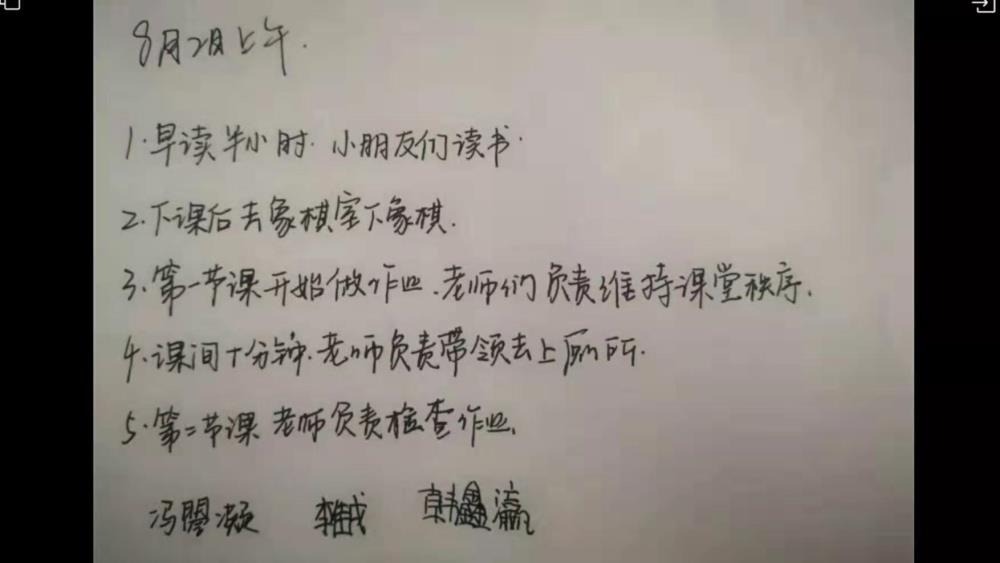 8月2日上午.
1.早读半小时.小朋友们读书.
2.下课后去象棋室下象棋.
3.第一节课开始做作业.老师们负责维持课堂秩序.
4.课间十分钟.老师负责带领去上厕所.
5.第二节课老师负责检查作业.
冯 凝 韩鑫瀛